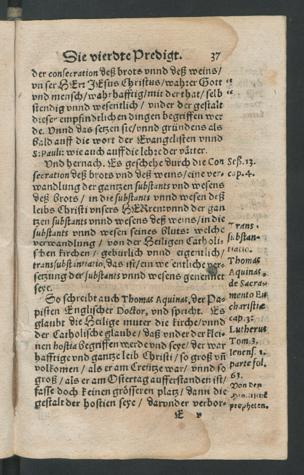 Die vierdte Predigt. 37
der consecration deß brots vnnd deß weins /
vnser HErr JEsus Christus / wahrer Gott
vnd mensch / wahrhafftig / mit der that / selb
stendig vnnd wesentlich / vnder der gestalt
dieser empfindtlichen dingen begriffen wer
de. Vnnd das setzen sie / vnnd gründens als
bald auff die wort der Euangelisten vnnd
S. Pauli: wie auch auff die lehr der vätter.
Vnd hernach. Es geschehe durch die Con
secration deß brots vnd deß weins / eine ver
wandlung der gantzen substants vnd wesens
deß brots / in die substants vnnd wesen deß
leibs Christi vnsers HERren: vnnd der gan
tzen substants vnnd wesens deß weins / in die
substants vnnd wesen seines Bluts: welche
verwandlung / von der Heiligen Catholi
schen kirchen / gebürlich vnnd eigentlich /
transsubstantiatio, das ist / ein wesentliche ver
setzung der substants vnnd wesens genennet
seye.
So schreibt auch Thomas Aquinas, der Pa
pisten Englischer Doctor, vnd spricht. Es
glaubt die Heilige muter die kirche / vnnd
der Catholische glaube / daß vnder der klei
nen hostia begriffen werde vnd seye / der war
hafftige vnd gantze leib Christi / so groß vnd
volkomen / als er am Creutze war / vnnd so
groß / als er am Ostertag aufferstanden ist /
fasse doch keinen grösseren platz / dann die
gestalt der hostien seye / darunder verbor-
E v
Seß. 13.
cap. 4.
Trans-
substan-
tiatio.
Thomas
Aquinas,
de Sacra-
mento Eu
charistiæ
cap. 3.
Lutherus
Tom. 3.
Ienens. 1.
parte fol.
63.
Von den
propheten.